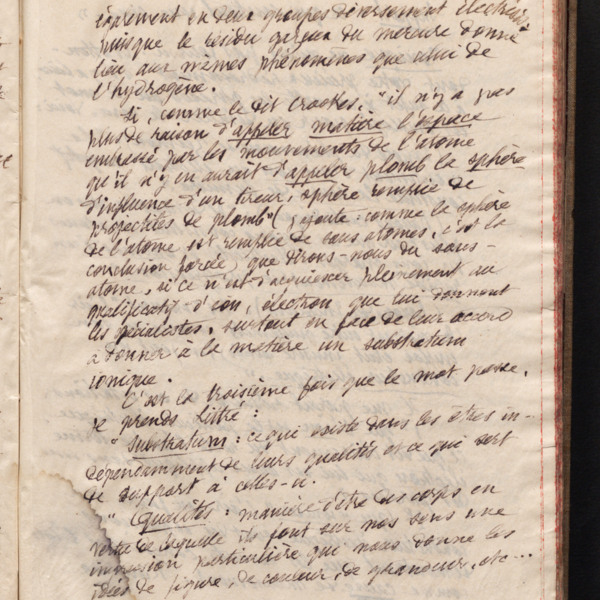 également en deux groupes diversement électrisés
puisque le résidu gazeux du mercure donne
lieu aux mêmes phénomènes que celui de
l'hydrogène.
Si, comme le dit Crookes, "il n'y a pas
plus de raison d'appeler matière l'espace
embrassé par les mouvements de l'atome
qu'il n'y en aurait d'appeler plomb la sphère
d'influence d'un tireur, sphère remplie de
projectiles de plomb" (j'ajoute: comme la sphère
de l'atome est remplie de sous atomes, c'est la
conclusion forcée, que dirons-nous du sous-
atome, si ce n'est d'acquiescer pleinement au
qualificatif d'ion, électron que lui donnent
les spécialistes, surtout en face de leur accord
à donner à la matière un substratum
ionique.
C'est la troisième fois que le mot passe.
Je prends Littré:
" Substratum: ce qui existe dans les êtres in-
dépendamment de leurs qualités et ce qui sert
de support à celles-ci.
" Qualités: manière d'être des corps en
vertu de laquelle ils font sur nos sens une
impression particulière qui nous donne les
idées de figure, de couleur, de grandeurs, etc...